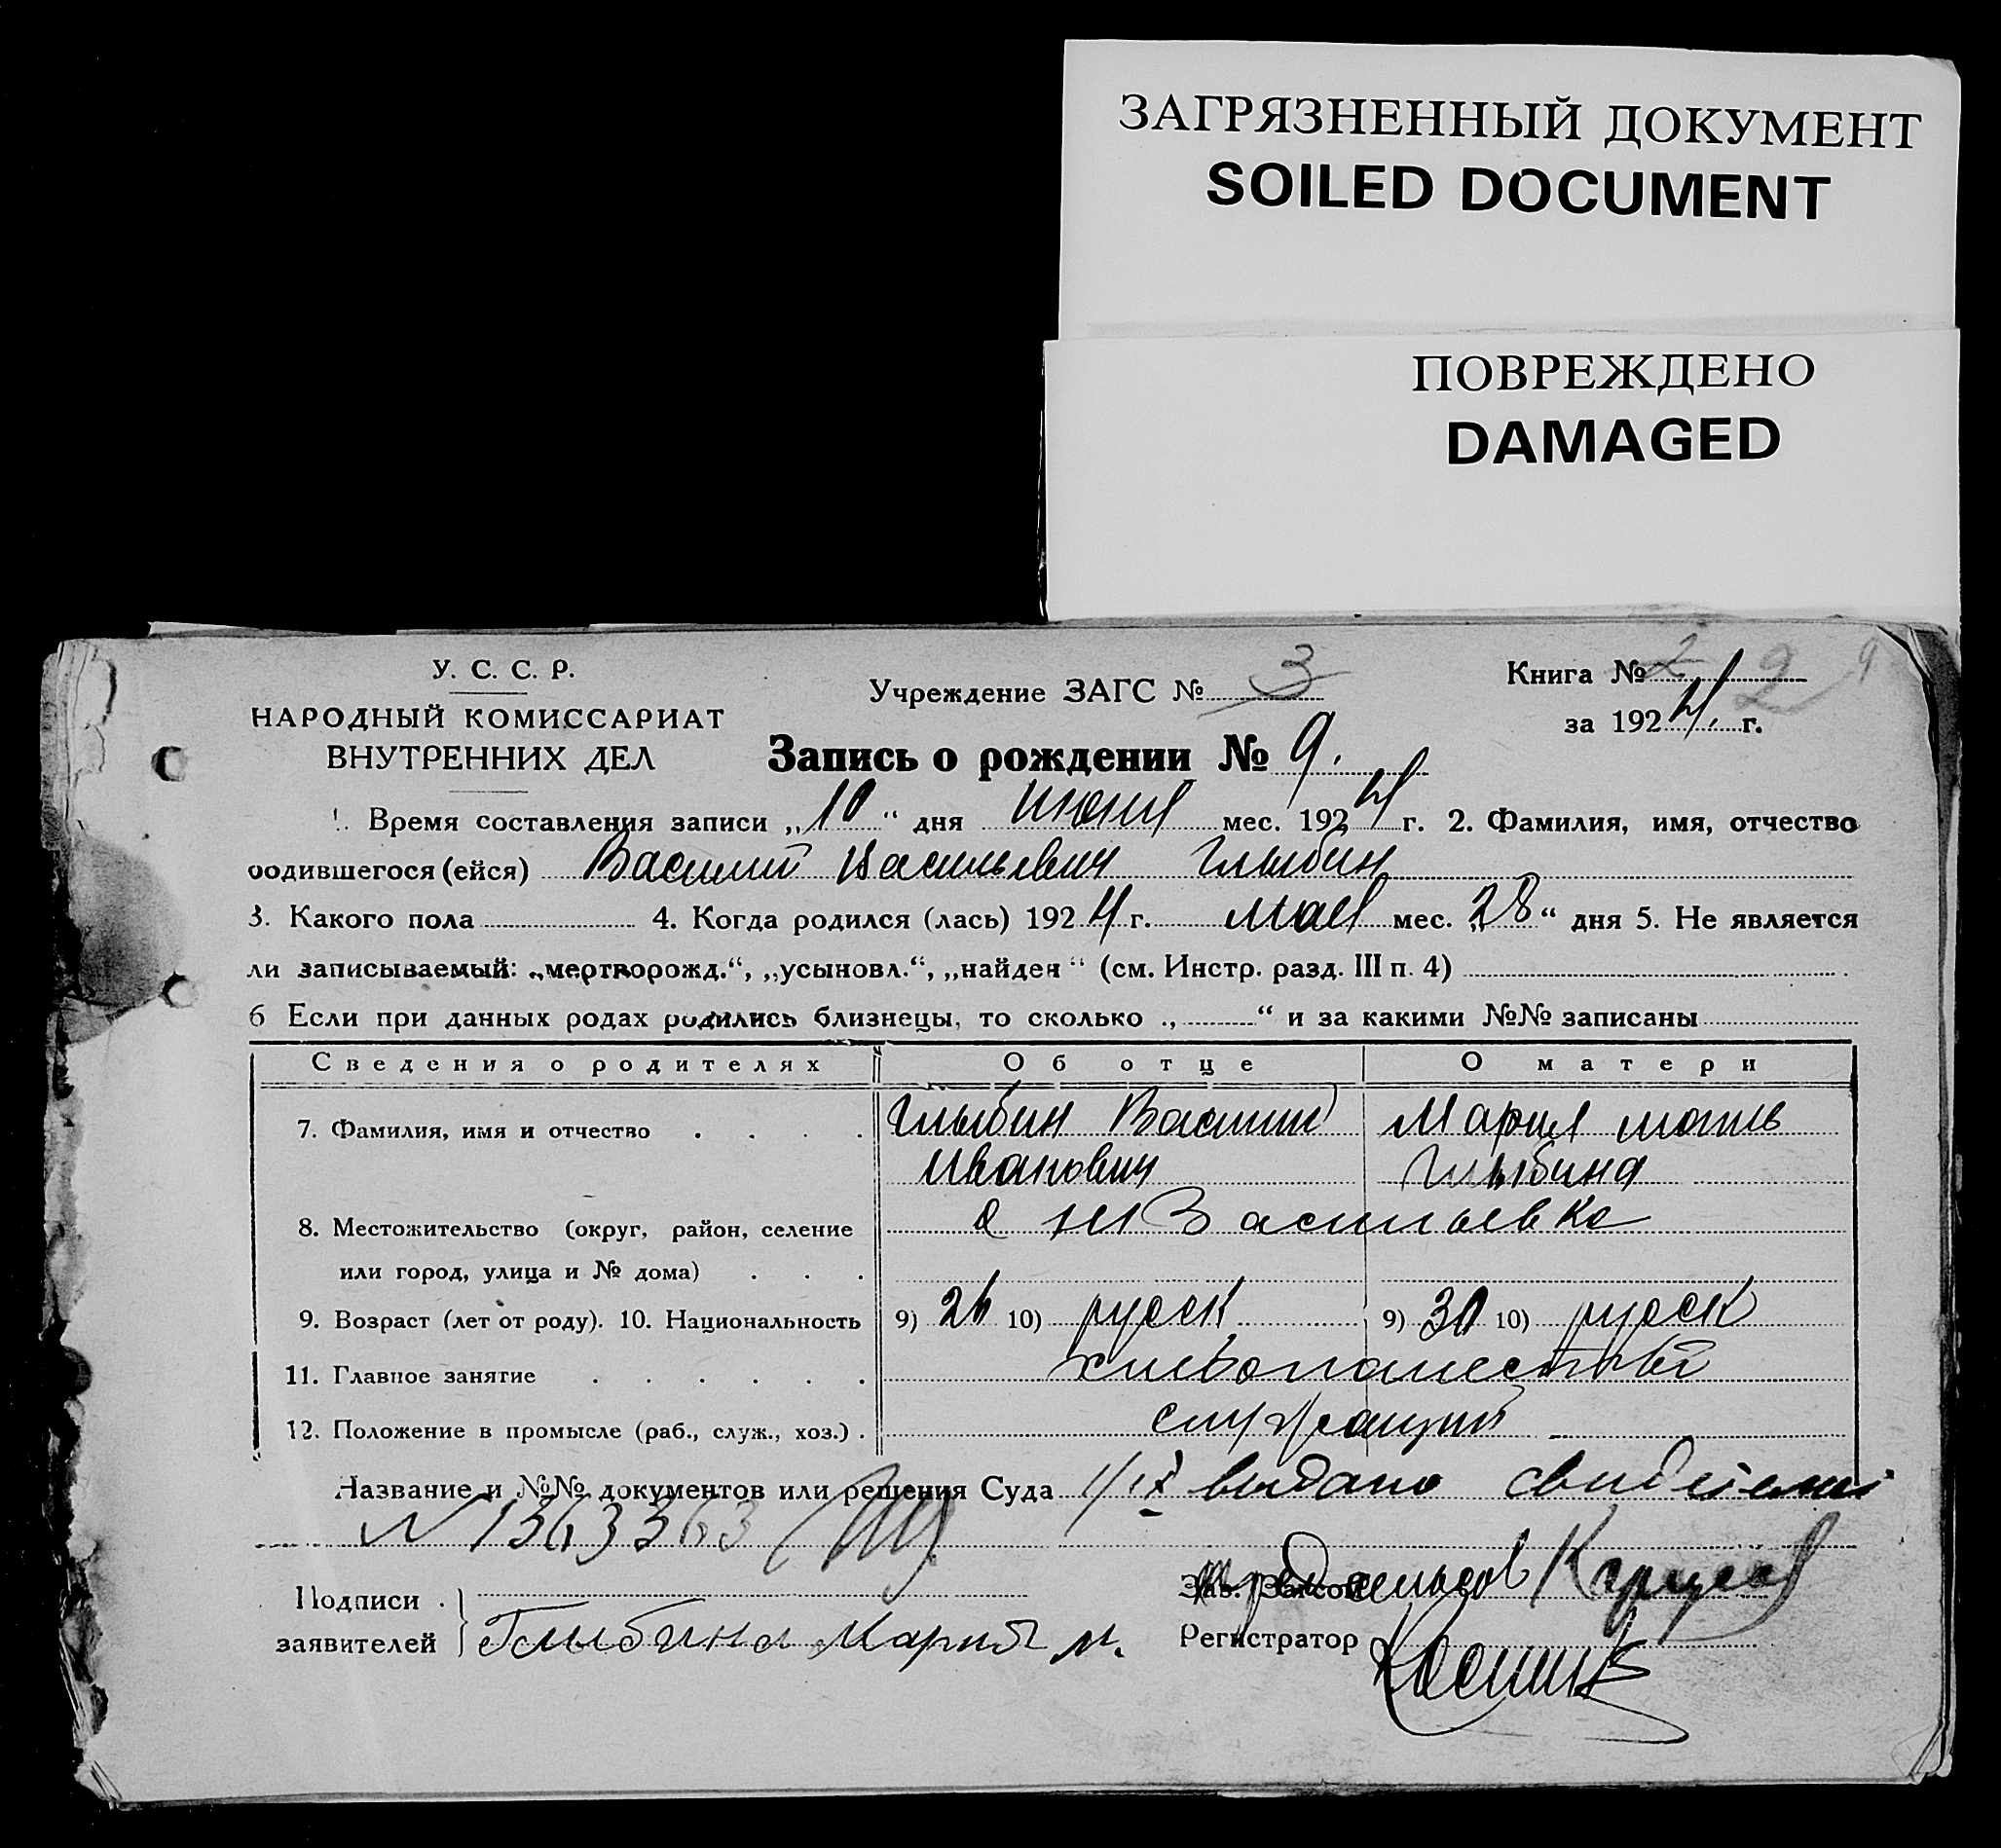 ЗАГРЯЗНЕННЫЙ ДОКУМЕНТ
SOILED DOCUMENT
ПОВРЕЖДЕНО
DAMAGED
У. С. С. Р.
НАРОДНЫЙ КОМИССАРИАТ
ВНУТРЕННИХ ДЕЛ
Учреждение ЗАГС № 3
Книга № 2
за 1924 г.
Запись о рождении № 9.
1. Время составления записи „10“ дня июня мес. 1924 г. 2. Фамилия, имя, отчество
родившегося (ейся) Василий Васильевич Глыбин
3. Какого пола 4. Когда родился (лась) 1924 г. мая мес. „28“ дня 5. Не является
ли записываемый: „мертворожд.“, „усыновл.“, „найден“ (см. Инстр. разд. III п. 4)
6 Если при данных родах родились близнецы, то сколько „ “ и за какими №№ записаны
Сведения о родителях Об отце О матери
7. Фамилия, имя и отчество Глыбин Василий Мария
Иванович Глыбина
8. Местожительство (округ, район, селение Васильевка
или город, улица и № дома)
9. Возраст (лет от роду). 10. Национальность 9) 26 10) русск 9) 30 10) русск
11. Главное занятие хлебопашество
12. Положение в промысле (раб., служ., хоз.)
Название и №№ документов или решения Суда 1/IX выдано
N 1363363
Подписи
заявителей Глыбина Мария М.
Зав. Загсом
Регистратор